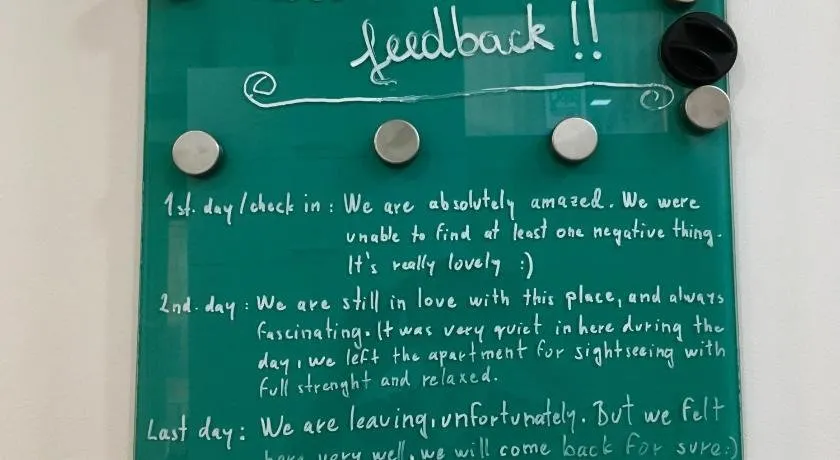 feedback!!
1st. day/check in: We are absolutely amazed. We were
unable to find at least one negative thing.
It's really lovely :)
2nd. day: We are still in love with this place, and always
fascinating. It was very quiet in here during the
day, we left the apartment for sightseeing with
full strenght and relaxed.
Last day: We are leaving, unfortunately. But we felt
here very well, we will come back for sure:)